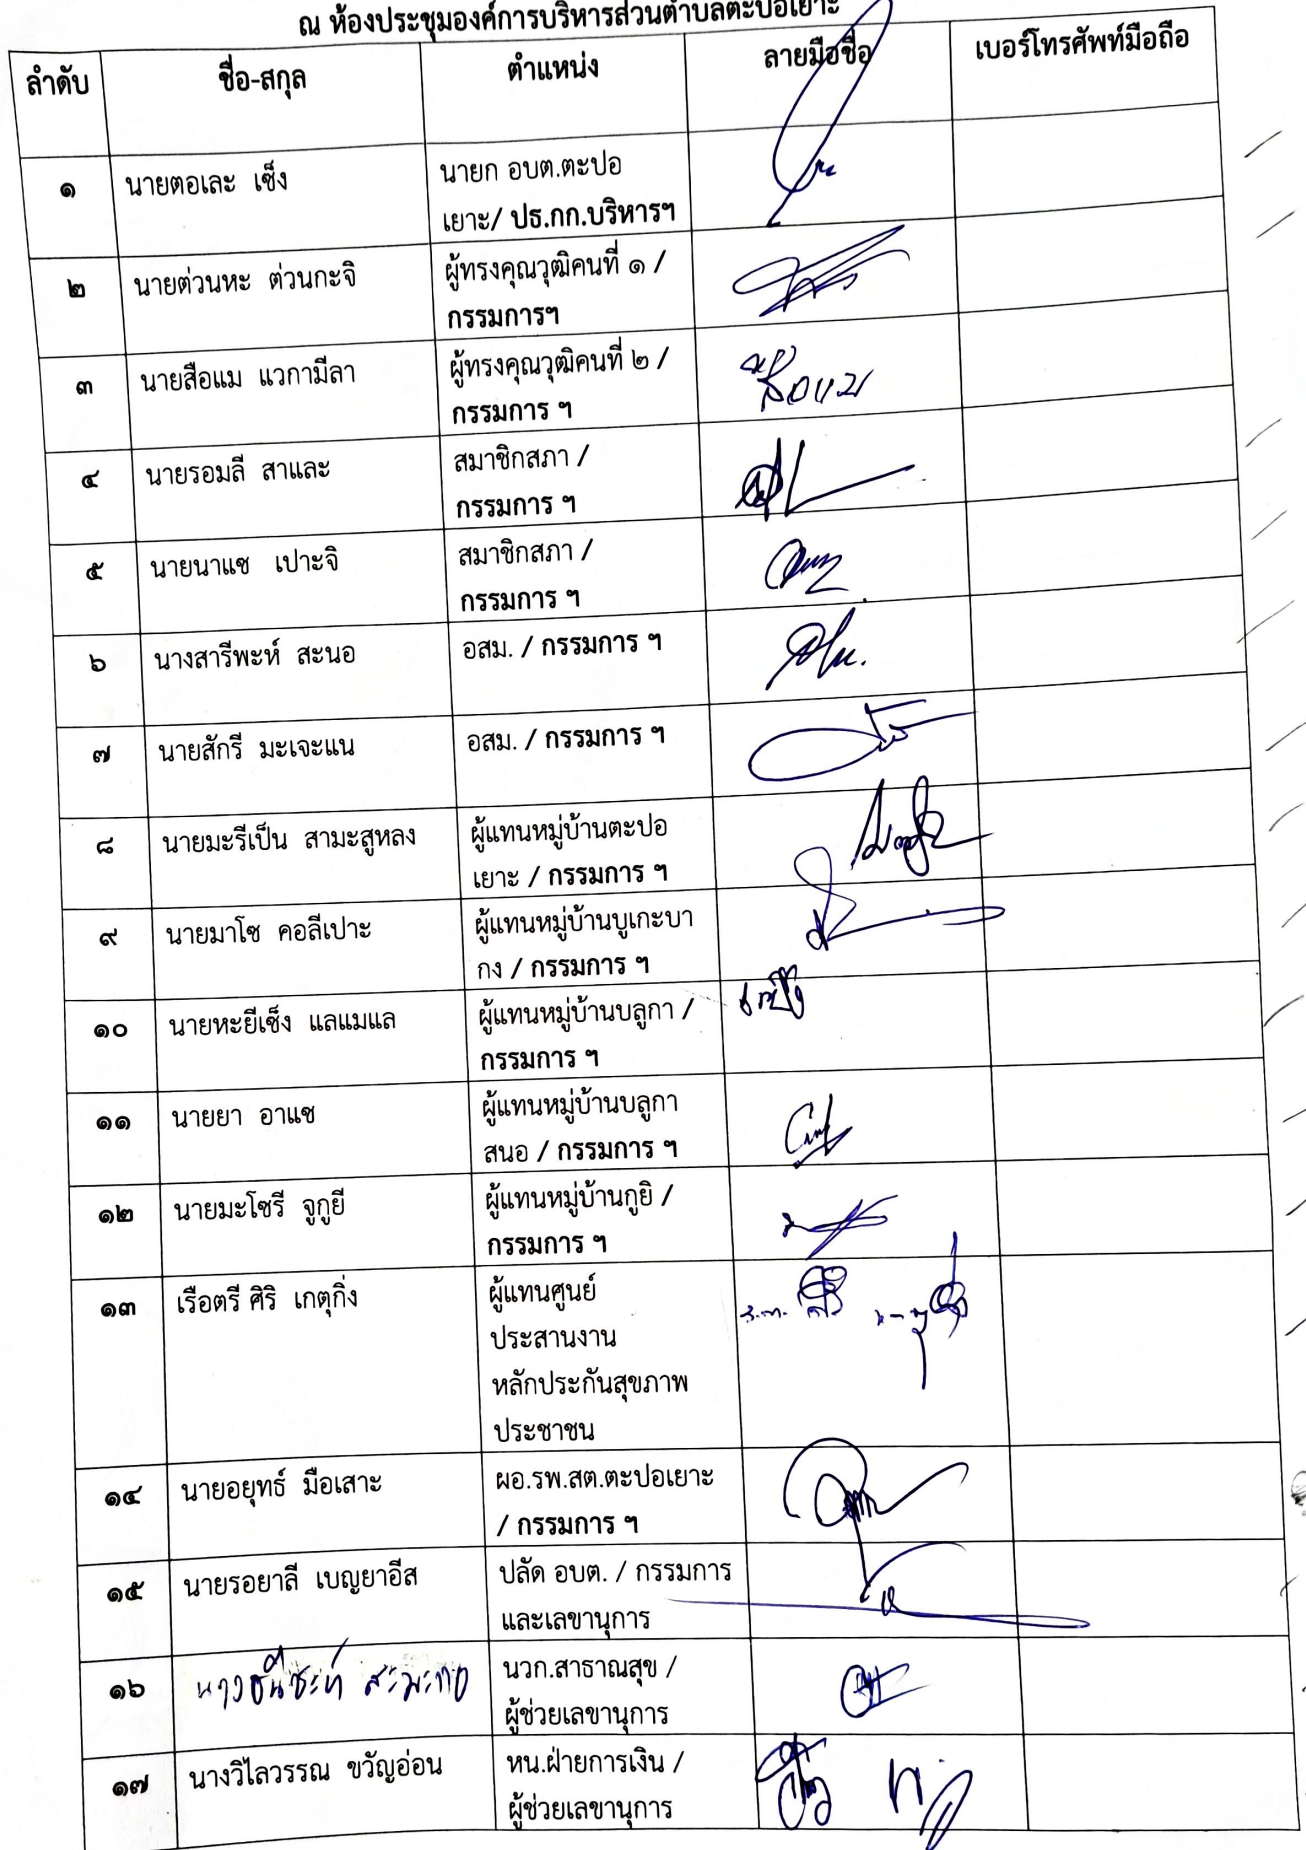 ณ ห้องประชุมองค์การบริหารส่วนตำบลตะปอเยาะ
ลำดับ ชื่อ-สกุล ตำแหน่ง ลายมือชื่อ เบอร์โทรศัพท์มือถือ
๑ นายตอเละ เซ็ง นายก อบต.ตะปอ
เยาะ/ ปธ.กก.บริหารฯ
๒ นายต่วนหะ ต่วนกะจิ ผู้ทรงคุณวุฒิคนที่ ๑ /
กรรมการฯ
๓ นายสือแม แวกามีลา ผู้ทรงคุณวุฒิคนที่ ๒ / สือแม
กรรมการ ฯ
๔ นายรอมลี สาและ สมาชิกสภา /
กรรมการ ฯ
๕ นายนาแซ เปาะจิ สมาชิกสภา /
กรรมการ ฯ
๖ นางสารีพะห์ สะนอ อสม. / กรรมการ ฯ
๗ นายสักรี มะเจะแน อสม. / กรรมการ ฯ
๘ นายมะรีเป็น สามะสูหลง ผู้แทนหมู่บ้านตะปอ
เยาะ / กรรมการ ฯ
๙ นายมาโซ คอลีเปาะ ผู้แทนหมู่บ้านบูเกะบา
กง / กรรมการ ฯ
๑๐ นายหะยีเซ็ง แลแมแล ผู้แทนหมู่บ้านบลูกา /
กรรมการ ฯ
๑๑ นายยา อาแซ ผู้แทนหมู่บ้านบลูกา
สนอ / กรรมการ ฯ
๑๒ นายมะโซรี จูกูยี ผู้แทนหมู่บ้านกูยิ /
กรรมการ ฯ
๑๓ เรือตรี ศิริ เกตุกิ่ง ผู้แทนศูนย์
ประสานงาน
หลักประกันสุขภาพ
ประชาชน
๑๔ นายอยุทธ์ มือเสาะ ผอ.รพ.สต.ตะปอเยาะ
/ กรรมการ ฯ
๑๕ นายรอยาลี เบญยาอีส ปลัด อบต. / กรรมการ
และเลขานุการ
๑๖ นาง สะมะแอ นวก.สาธาณสุข /
ผู้ช่วยเลขานุการ
๑๗ นางวิไลวรรณ ขวัญอ่อน หน.ฝ่ายการเงิน /
ผู้ช่วยเลขานุการ